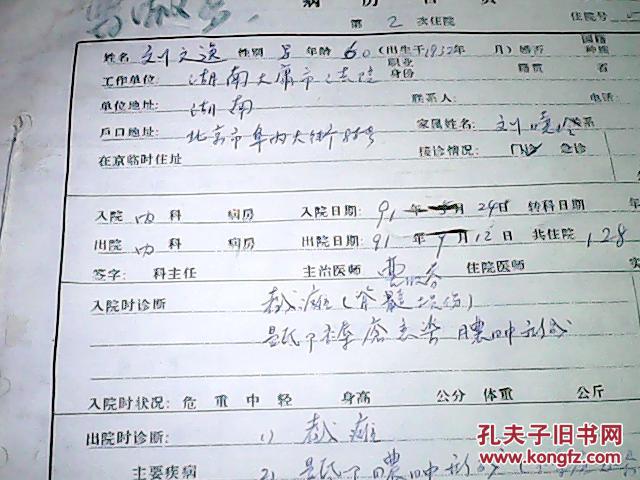 病历首页
第 2 次住院 住院号
姓名 刘文逸 性别 男 年龄 60 (出生于1932年 月) 婚否 国籍 种族
工作单位: 湖南大庸市法院 职业 身份 籍贯 省
单位地址: 湖南 联系人: 电话:
户口地址: 北京市阜内大街85号 家属姓名: 刘晓 关系
在京临时住址 接诊情况: 门诊 急诊
入院 内 科 病房 入院日期: 91 年 月 29日 转科日期 年
出院 内 科 病房 出院日期: 91 年 9月12日 共住院 128
签字: 科主任 主治医师 住院医师 实
入院时诊断 截瘫(脊髓损伤)
骶下褥疮感染 脓腔形成
入院时状况: 危 重 中 轻 身高 公分 体重 公斤
出院时诊断: 1) 截瘫
主要疾病 2) 骶下脓腔形成
孔夫子旧书网
www.kongfz.com